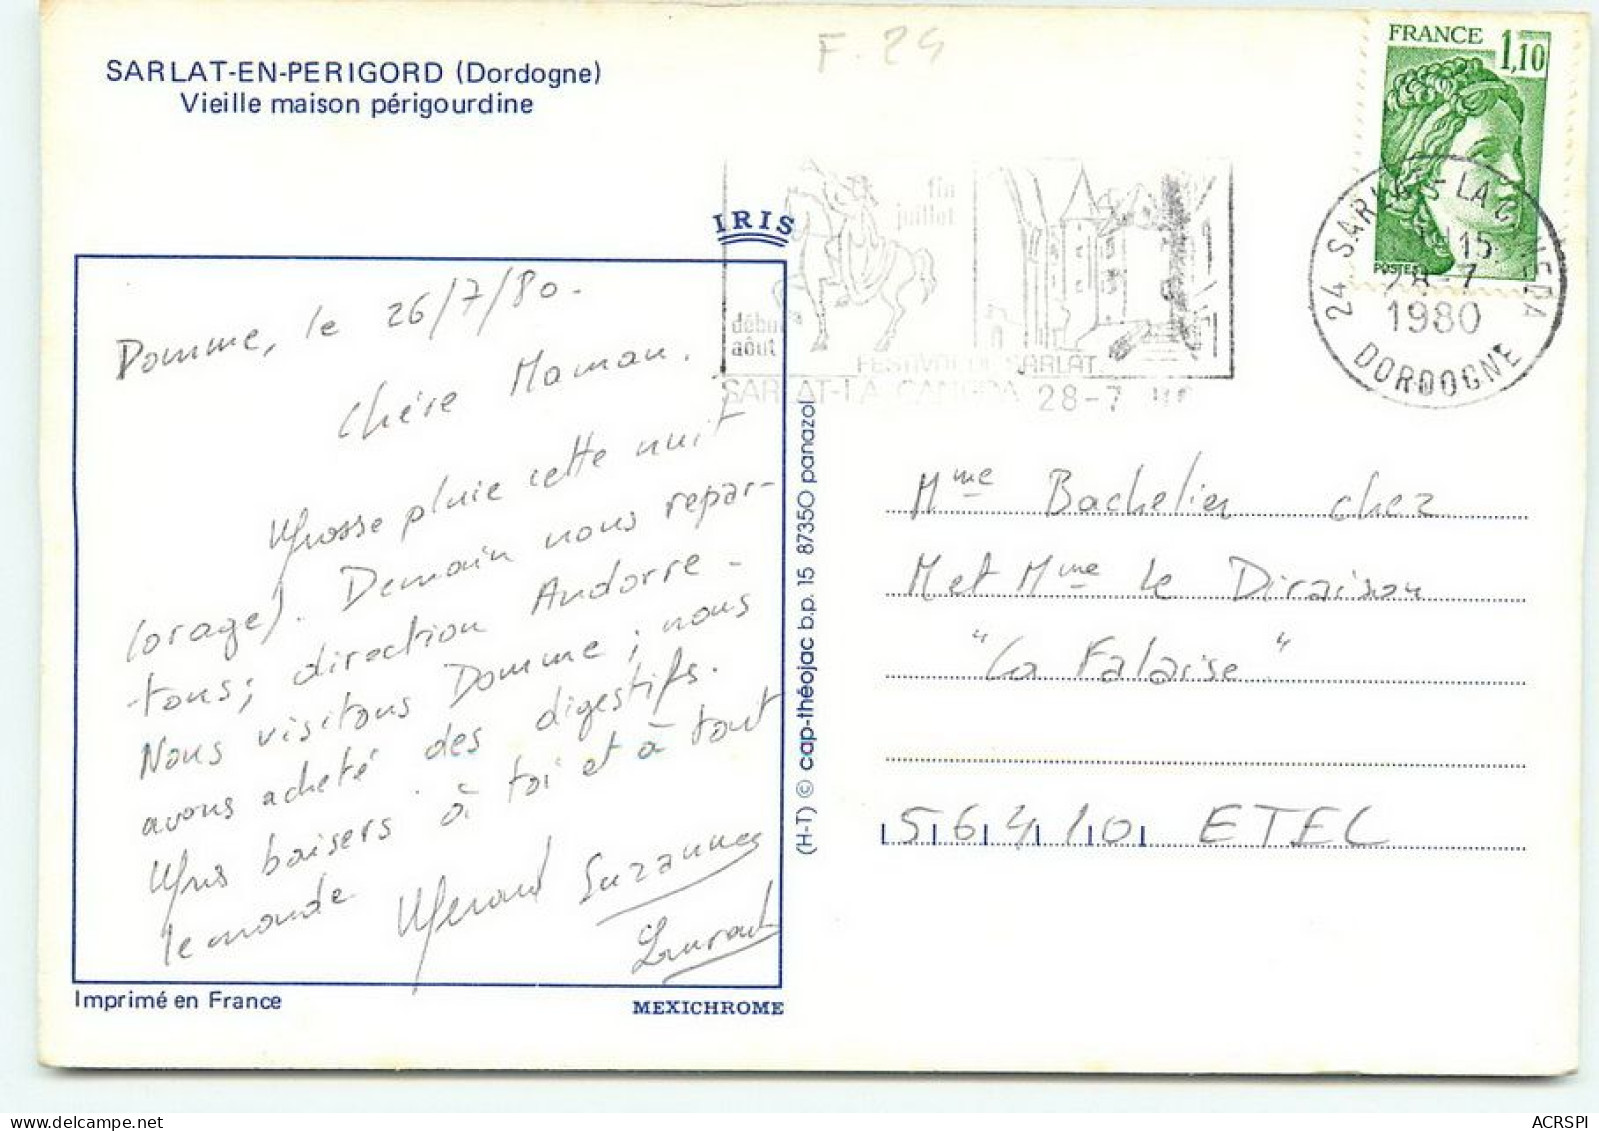 F. 24
SARLAT-EN-PERIGORD (Dordogne)
Vieille maison périgourdine
FRANCE 1,10
POSTES
IRIS
fin
juillet
début
août
FESTIVAL DE SARLAT
SARLAT-LA CANEDA 28-7
24 SARLAT LA CANEDA
15
28-7
1980
DORDOGNE
Domme, le 26/7/80.
Chère Maman.
Grosse pluie cette nuit
(orage). Demain nous repar-
tons; direction Andorre -
Nous visitons Domme; nous
avons acheté des digestifs.
Gros baisers à toi et à tout
le monde
Gérard Suzanne
Laurent
Imprimé en France
MEXICHROME
(H-T) © cap-théojac b.p. 15 87350 panazol
Mme Bachelier chez
M et Mme Le Diraison
"La Falaise"
56410 ETEL
ACRSPI